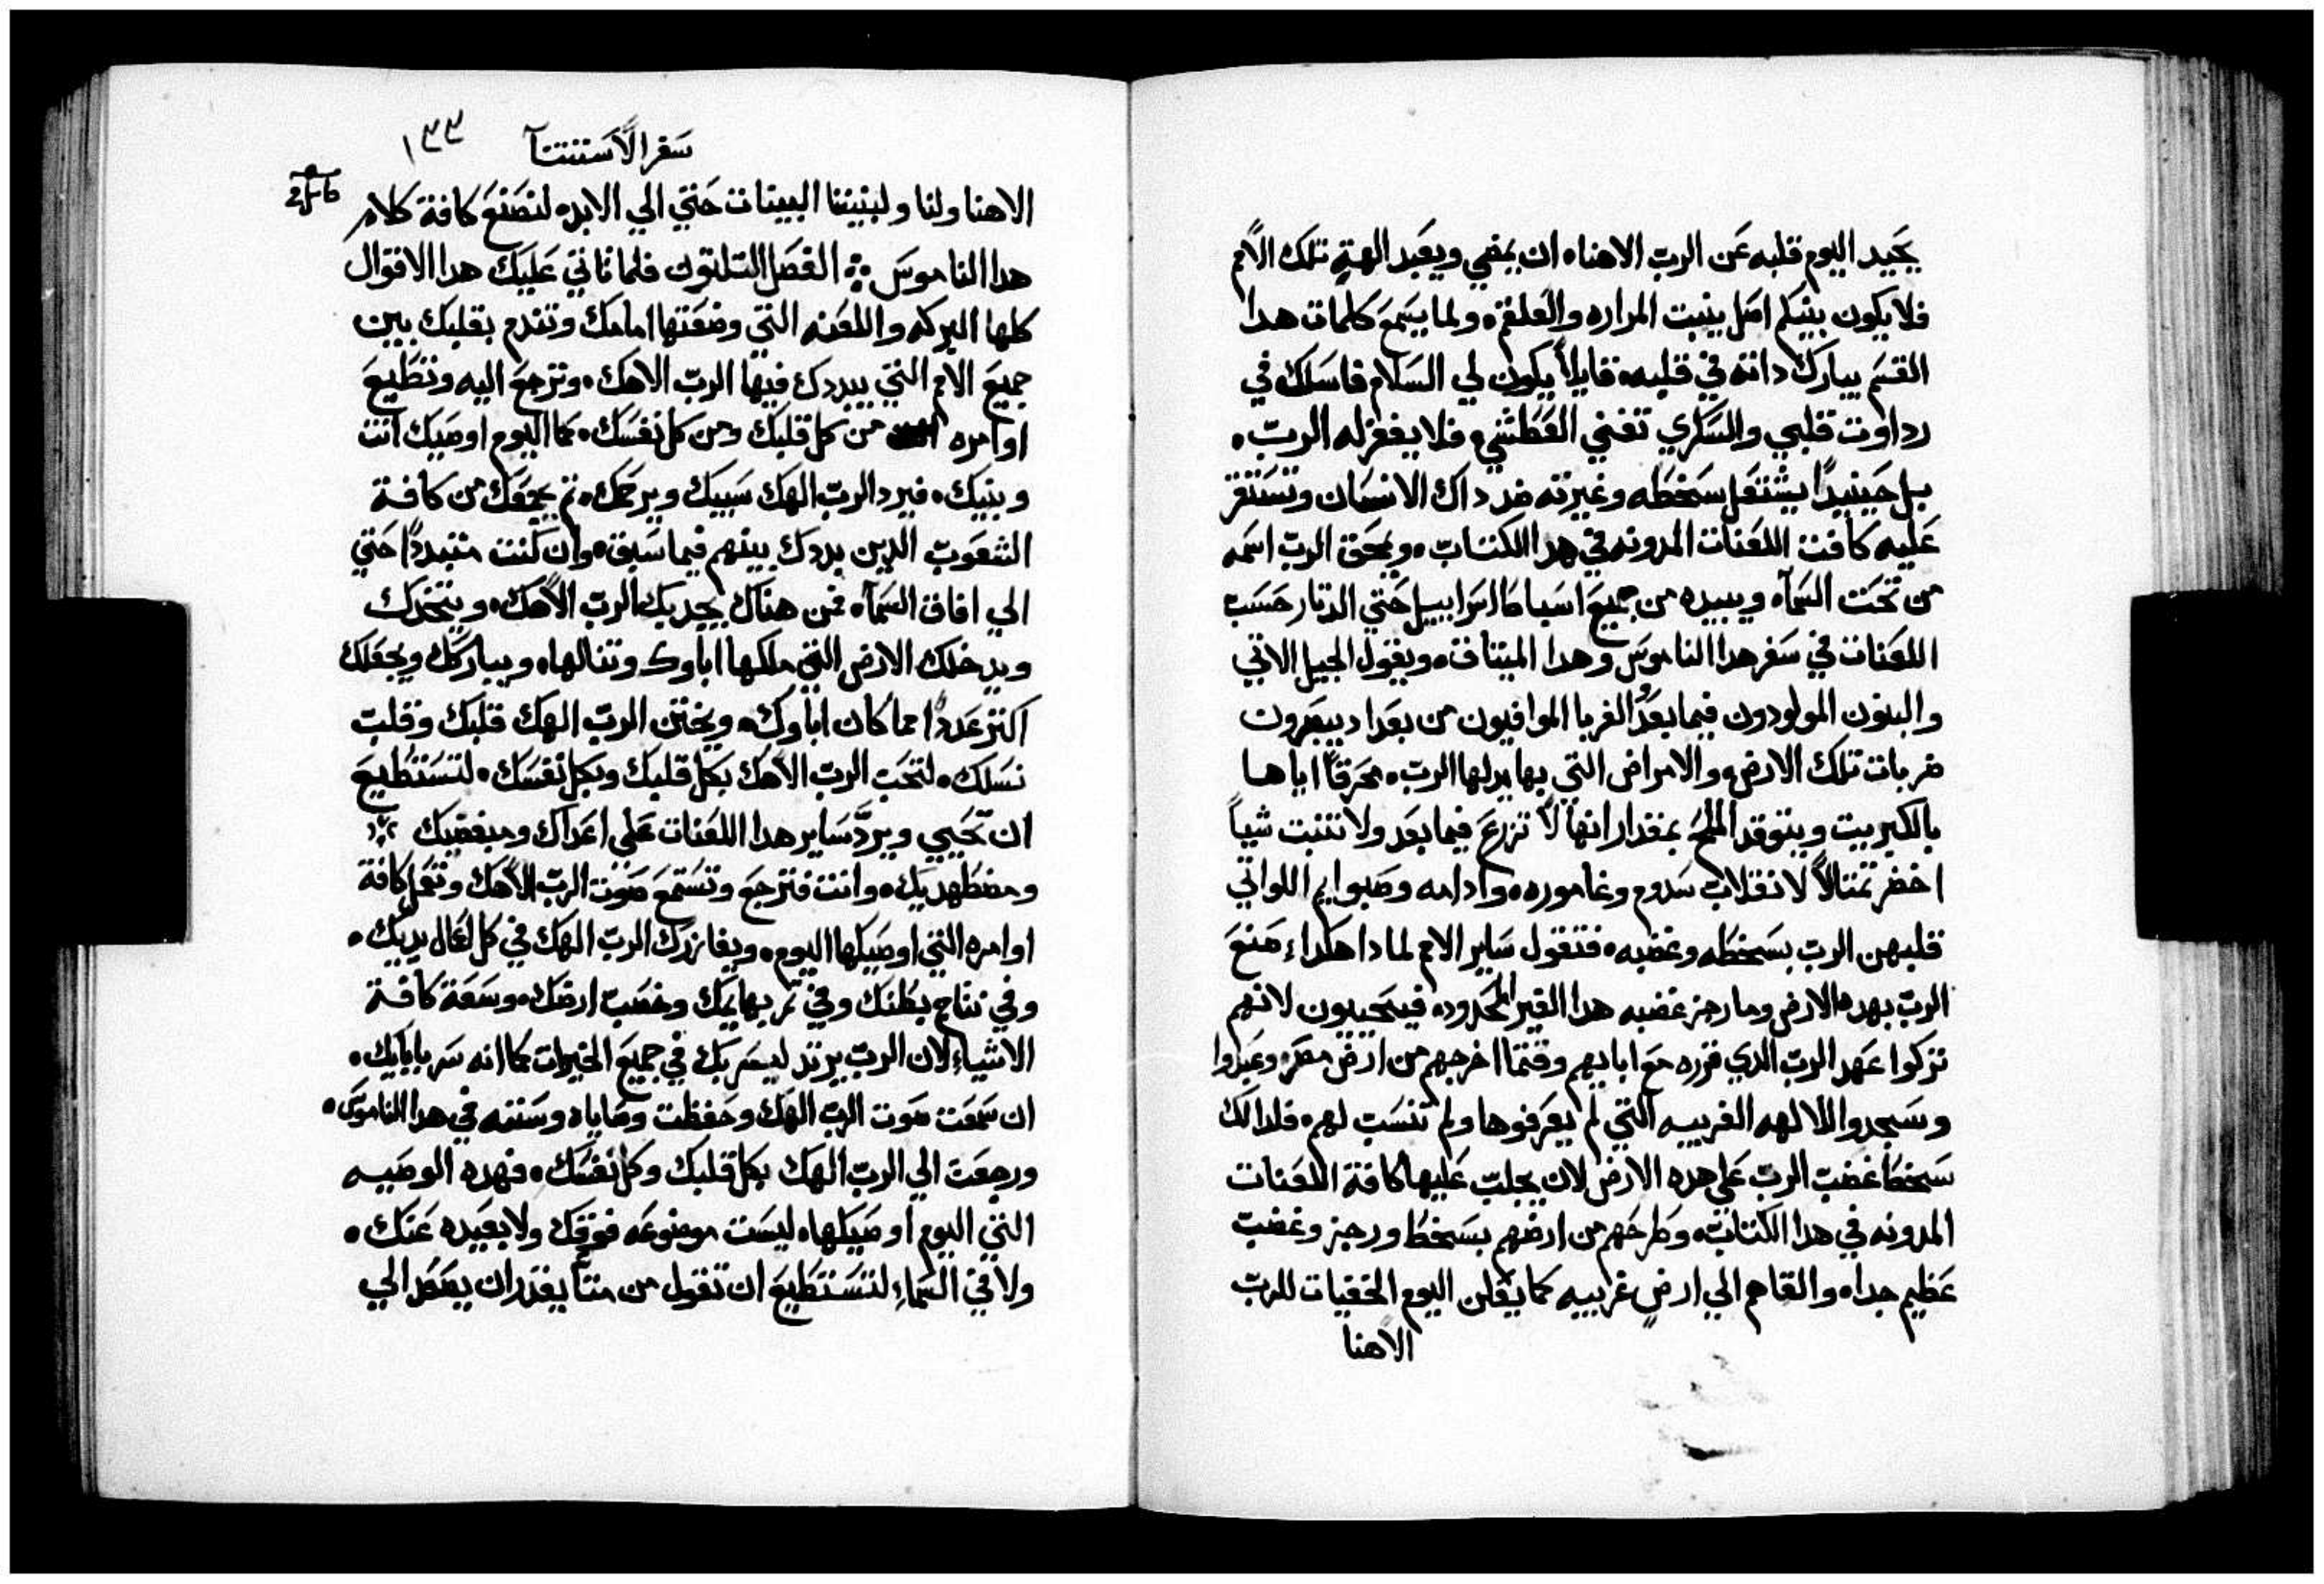 يحيد اليوم قلبه عن الرب الاهنا ان يمضي ويعبد الهة تلك الامم
فلا يكون بينكم اصل ينبت المراره والعلقم ولما يسمع كلمات هدا
القسم يبارك داته في قلبه قايلاً يكون لي السلام فاسلك في
رداوت قلبي والسكري تفني العطشي فلا يغفر له الرب
بل حينيدٍ يشتعل سخطه وغيرته ضد داك الانسان وتستقر
عليه كافت اللعنات المدونه في هدا الكتاب ويمحق الرب اسمه
من تحت السماء ويبيده من جميع اسباط اسراييل حتي الدتار حسب
اللعنات في سفر هدا الناموس وهدا الميتاق ويقول الجيل الاتي
والبنون المولودون فيما بعد والغربا الموافيون من بعد اد يبصرون
ضربات تلك الارض والامراض التي بها يدلها الرب محرقاً اياها
بالكبريت ويتوقد الملح بمقدار انها لا تزرع فيما بعد ولا تنبت شياً
اخضر تمتالاً لانقلاب سدوم وغاموره وادامه وصبوايم اللواتي
قلبهن الرب بسخطه وغضبه فتقول ساير الامم لمادا هكدا صنع
الرب بهده الارض وما رجز غضبه هدا الغير المحدود فيجيبون لانهم
تركوا عهد الرب الدي قرره مع ابايهم وقتما اخرجهم من ارض مصر وعبدوا
وسجدوا لالهه الغريبه التي لم يعرفوها ولم تنسب لهم فلدالك
سخط غضب الرب علي هده الارض لان يجلب عليها كافة اللعنات
المدونه في هدا الكتاب وطرحهم من ارضهم بسخط ورجز وغضب
عظيم جدا والقاهم الي ارض غريبيه كما يعلن اليوم الخفيات للرب
الاهنا
سفر الاستتنآ
١٣٣
الاهنا ولنا ولبنيننا البينات حتي الي الابد لنصنع كافة كلام
هدا الناموس الفصل التلتون فلما تاتي عليك هدا الاقوال
كلها البركه واللعنه التي وضعتها امامك وتندم بقلبك بين
جميع الامم التي يبددك فيها الرب الاهك وترجع اليه وتطيع
اوامره من كل قلبك ومن كل نفسك كما اليوم اوصيك انت
وبنيك فيرد الرب الهك سبيك ويرحمك تم يجمعك من كافة
الشعوب الدين بددك بينهم فيما سبق وان كنت متبدداً حتي
الي افاق السماء فمن هناك يجديك الرب الاهك ويتخدك
ويدخلك الارض التي ملكها اباوك وتنالها ويباركك ويجعلك
اكتر عدداً مما كان اباوك ويختن الرب الهك قلبك وقلب
نسلك لتحب الرب الاهك بكل قلبك وبكل نفسك لتستطيع
ان تحيي ويردّ ساير هدا اللعنات علي اعداك ومبغضيك
ومضطهديك وانت فترجع وتستمع صوت الرب الاهك وتعمل كافة
اوامره التي اوصيكها اليوم ويغازرك الرب الهك في كل اعمال يديك
وفي نتاج بطنك وفي تمر بهايمك وخصب ارضك وسعة كافة
الاشياء لان الرب يرتد ليسر بك في جميع الخيرات كما انه سر باباييك
ان سمعت صوت الرب الهك وحفظت وصاياه وسننه في هدا الناموس
ورجعت الي الرب الهك بكل قلبك وكل نفسك فهده الوصيه
التي اليوم اوصيكها ليست موضوعه فوقك ولا بعيده عنك
ولا في السماء لتستطيع ان تقول من منا يقدر ان يصعد الي